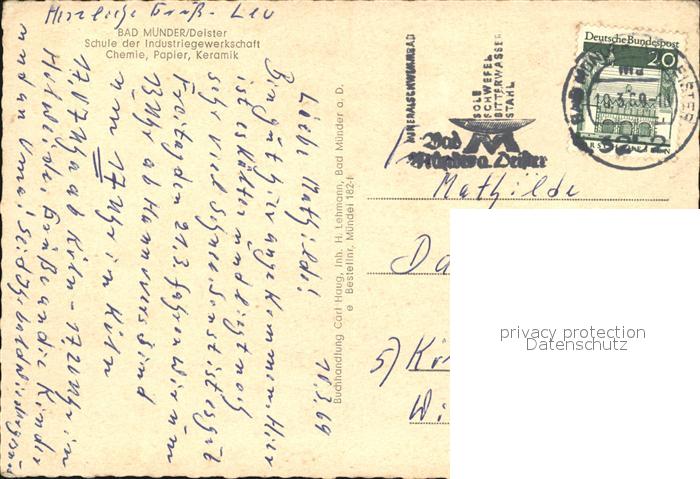 Herzliche Grüß. Leo
BAD MÜNDER/Deister
Schule der Industriegewerkschaft
Chemie, Papier, Keramik
10.3.69
Liebe Mathilde!
Bin gut hier angekommen. Hier
ist es kälter und liegt noch
sehr viel Schnee. Sonst ist es gut
Freitag den 21.3 fahren wir um
13 Uhr ab Hannover sind
um 17 Uhr in Köln
17.07 Uhr ab Köln – 17.20 Uhr in
Grüße an die Kinder
und an Oma! Seid
Buchhandlung Carl Haug, Inh. H. Lehmann, Bad Münder a. D.
Bestellnr. Münder 182-f
MINERALSCHWIMMBAD
SOLE
SCHWEFEL
BITTERWASSER
STAHL
Bad
Münder a. Deister
Deutsche Bundespost
20
Mathilde
5)
privacy protection
Datenschutz